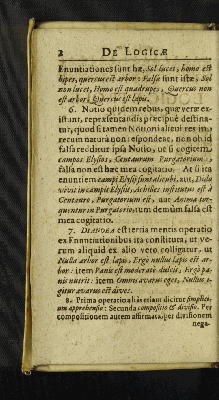 2 DE LOGICA
Enuntiationes sunt hæ, Sol lucet, homo est
bipes, quercus est arbor: Falsæ sunt istæ, Sol
non lucet, Homo est quadrupes, Quercus non
est arbor, Quercus est lapis.
6. Notio quidem rebus, quæ vere ex-
istunt, repræsentandis præcipuè destina-
tur, quod si tamen Notioni alicui res in
rerum natura non respondeat, non ob id
falsa redditur ipsa Notio, ut si cogitem,
campos Elysios, Centaurum Purgatorium
falsa non est hæc mea cogitatio. At si ita
enuntiem campi Elysii sunt alicubi, aut, Dido
vivit in campis Elysiis, Achilles institutus est à
Centauro, Purgatorium est, aut Anima tor-
quentur in Purgatorio, tum demùm falsa est
mea cogitatio.
7. DIANOEA est tertia mentis operatio
ex Enuntiationibus ita constituta, ut ve-
rum aliquid ex alio vero colligatur, ut
Nulla arbor est lapis, Ergò nullus lapis est ar-
bor: item Panis est moderatè dulcis, Ergò pa-
nis nutrit: item Omnis avarus eges, Nullus
igitur avarus est dives.
8. Prima operatio aliàs etiam dicitur simplici-
um apprehensio: Secunda compositio & divisio. Per
compositionem autem affirmata, per divisionem
nega-